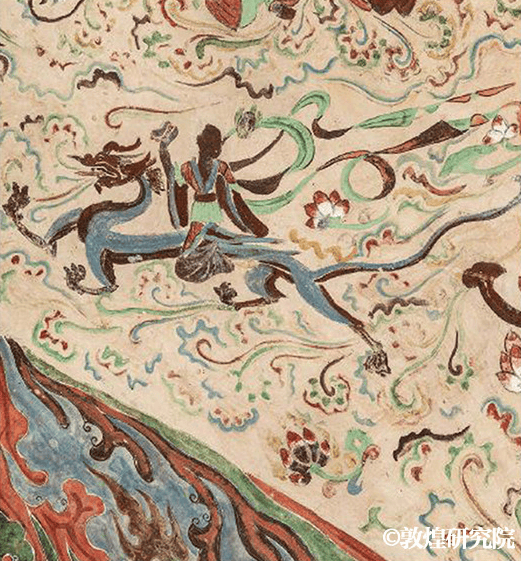 ©敦煌研究院